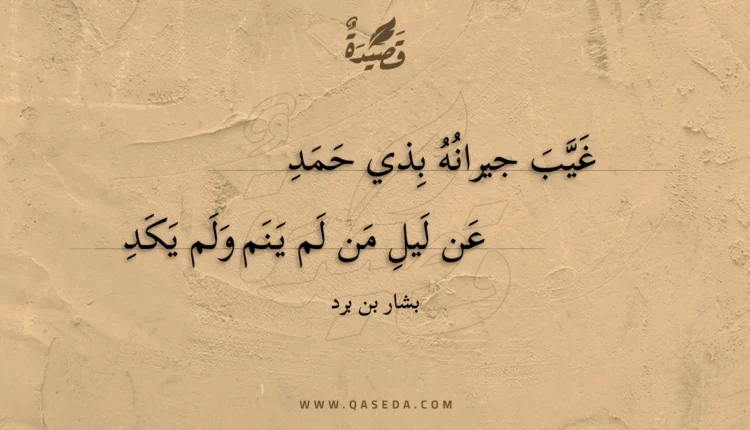 قَصِيدَةٌ
غَيَّبَ جيرانُهُ بِذي حَمَدِ
عَن لَيلِ مَن لَم يَنَم وَلَم يَكَدِ
بشار بن برد
WWW.QASEDA.COM